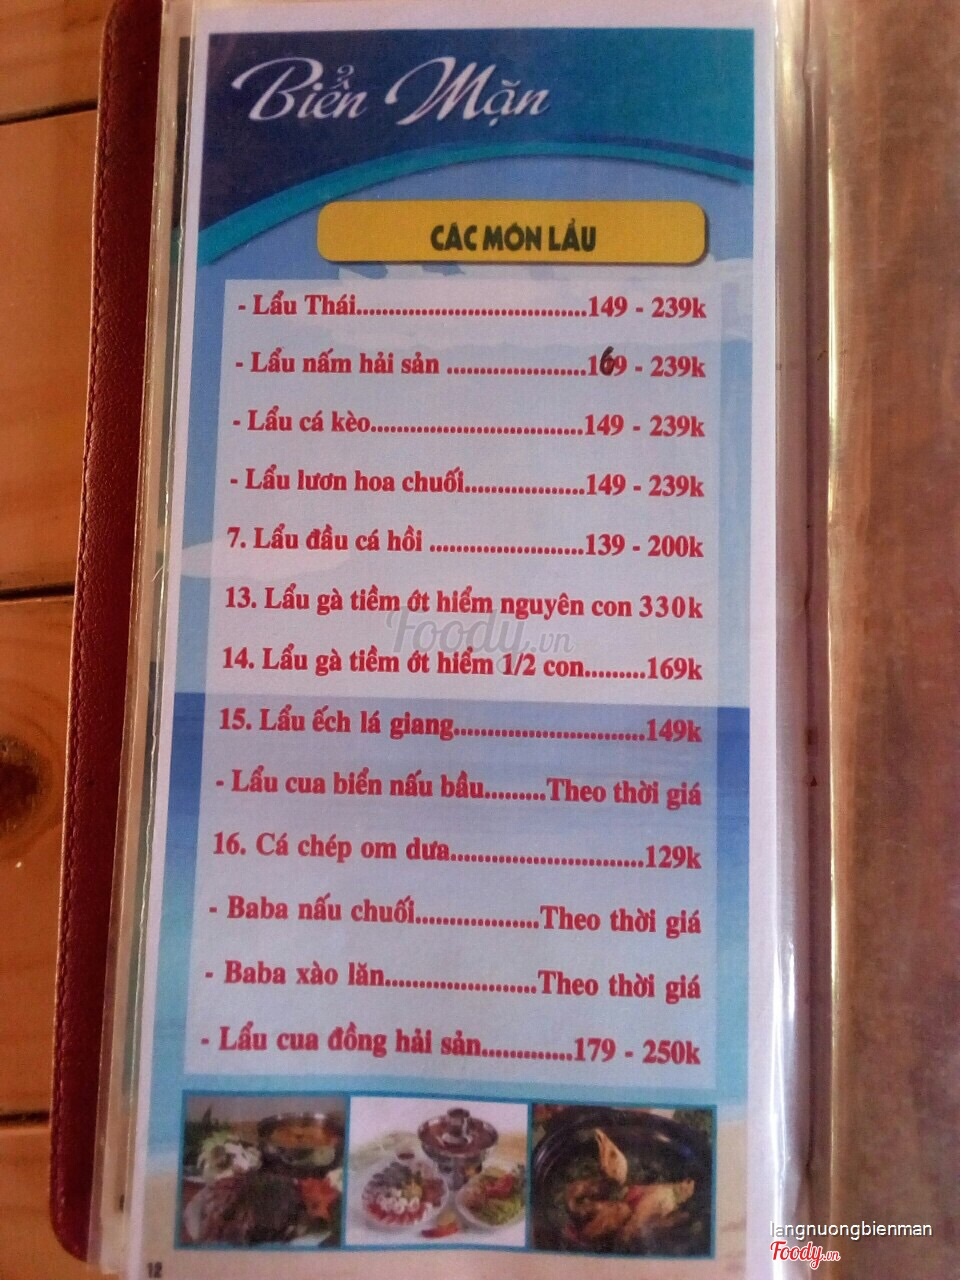 Biển Mặn
CÁC MÓN LẨU
- Lẩu Thái...................................149 - 239k
- Lẩu nấm hải sản .....................169 - 239k
- Lẩu cá kèo................................149 - 239k
- Lẩu lươn hoa chuối..................149 - 239k
7. Lẩu đầu cá hồi .......................139 - 200k
13. Lẩu gà tiềm ớt hiểm nguyên con 330k
Foody.vn
14. Lẩu gà tiềm ớt hiểm 1/2 con.........169k
15. Lẩu ếch lá giang.............................149k
- Lẩu cua biển nấu bầu.........Theo thời giá
16. Cá chép om dưa.............................129k
- Baba nấu chuối...................Theo thời giá
- Baba xào lăn.......................Theo thời giá
- Lẩu cua đồng hải sản..............179 - 250k
12
langnuongbienman
Foody.vn